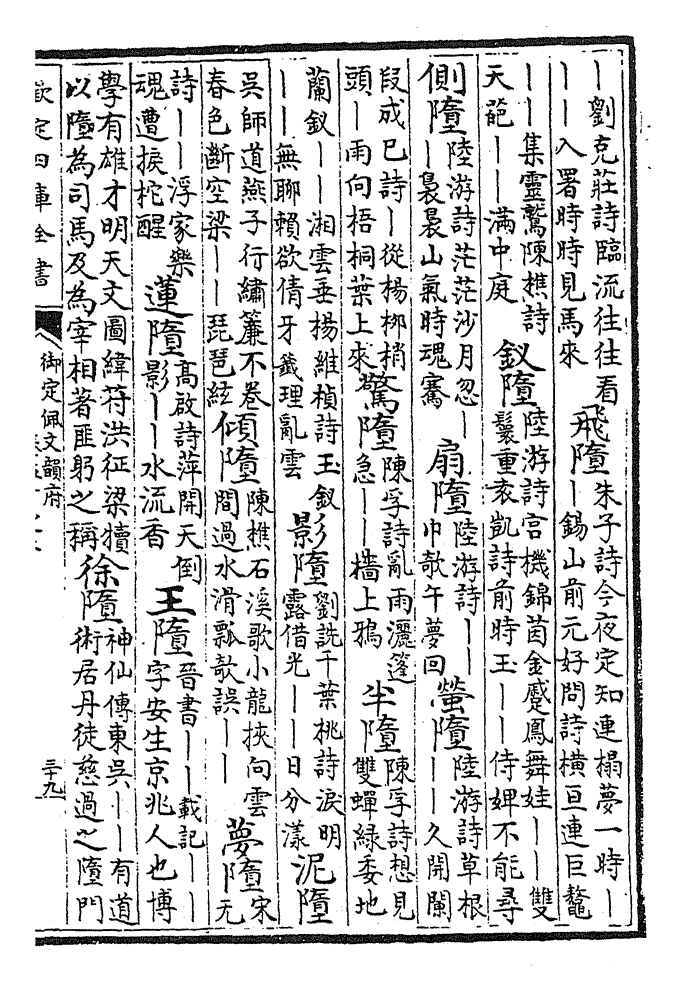 丨劉克莊詩臨流往往看
丨丨入署時時見馬來
飛墮
朱子詩今夜定知連榻夢一時丨
丨錫山前元好問詩橫亘連巨鼇
丨丨集靈鷲陳樵詩
天葩丨丨滿中庭
釵墮
陸游詩宮機錦茵金蹙鳳舞娃丨丨雙
鬟重袁凱詩前時玉丨丨侍婢不能尋
側墮
陸游詩茫茫沙月忽丨
丨裊裊山氣時魂騫
扇墮
陸游詩丨丨
巾欹午夢回
螢墮
陸游詩草根
丨丨久開闌
段成已詩丨從楊柳梢
頭丨雨向梧桐葉上來
驚墮
陳孚詩亂雨灑篷
急丨丨檣上鴉
半墮
陳孚詩想見
雙蟬綠委地
蘭釵丨丨湘雲垂楊維楨詩玉釵
丨丨無聊賴欲倩牙籤理亂雲
影墮
劉詵千葉桃詩淚明
露借光丨丨日分漾
泥墮
吳師道燕子行繡簾不卷
春色斷空梁丨丨琵琶絃
傾墮
陳樵石溪歌小龍挾向雲
間過水滑瓢欹誤丨丨
夢墮
宋
无
詩丨丨浮家樂
魂遭捩柁醒
蓮墮
高啟詩萍開天倒
影丨丨水流香
王墮
晉書丨丨載記丨丨
字安生京兆人也博
學有雄才明天文圖緯苻洪征梁犢
以墮為司馬及為宰相著匪躬之稱
徐墮
神仙傳東吳丨丨有道
術居丹徒慈過之墮門
欽定四庫全書
御定佩文韻府
三十九